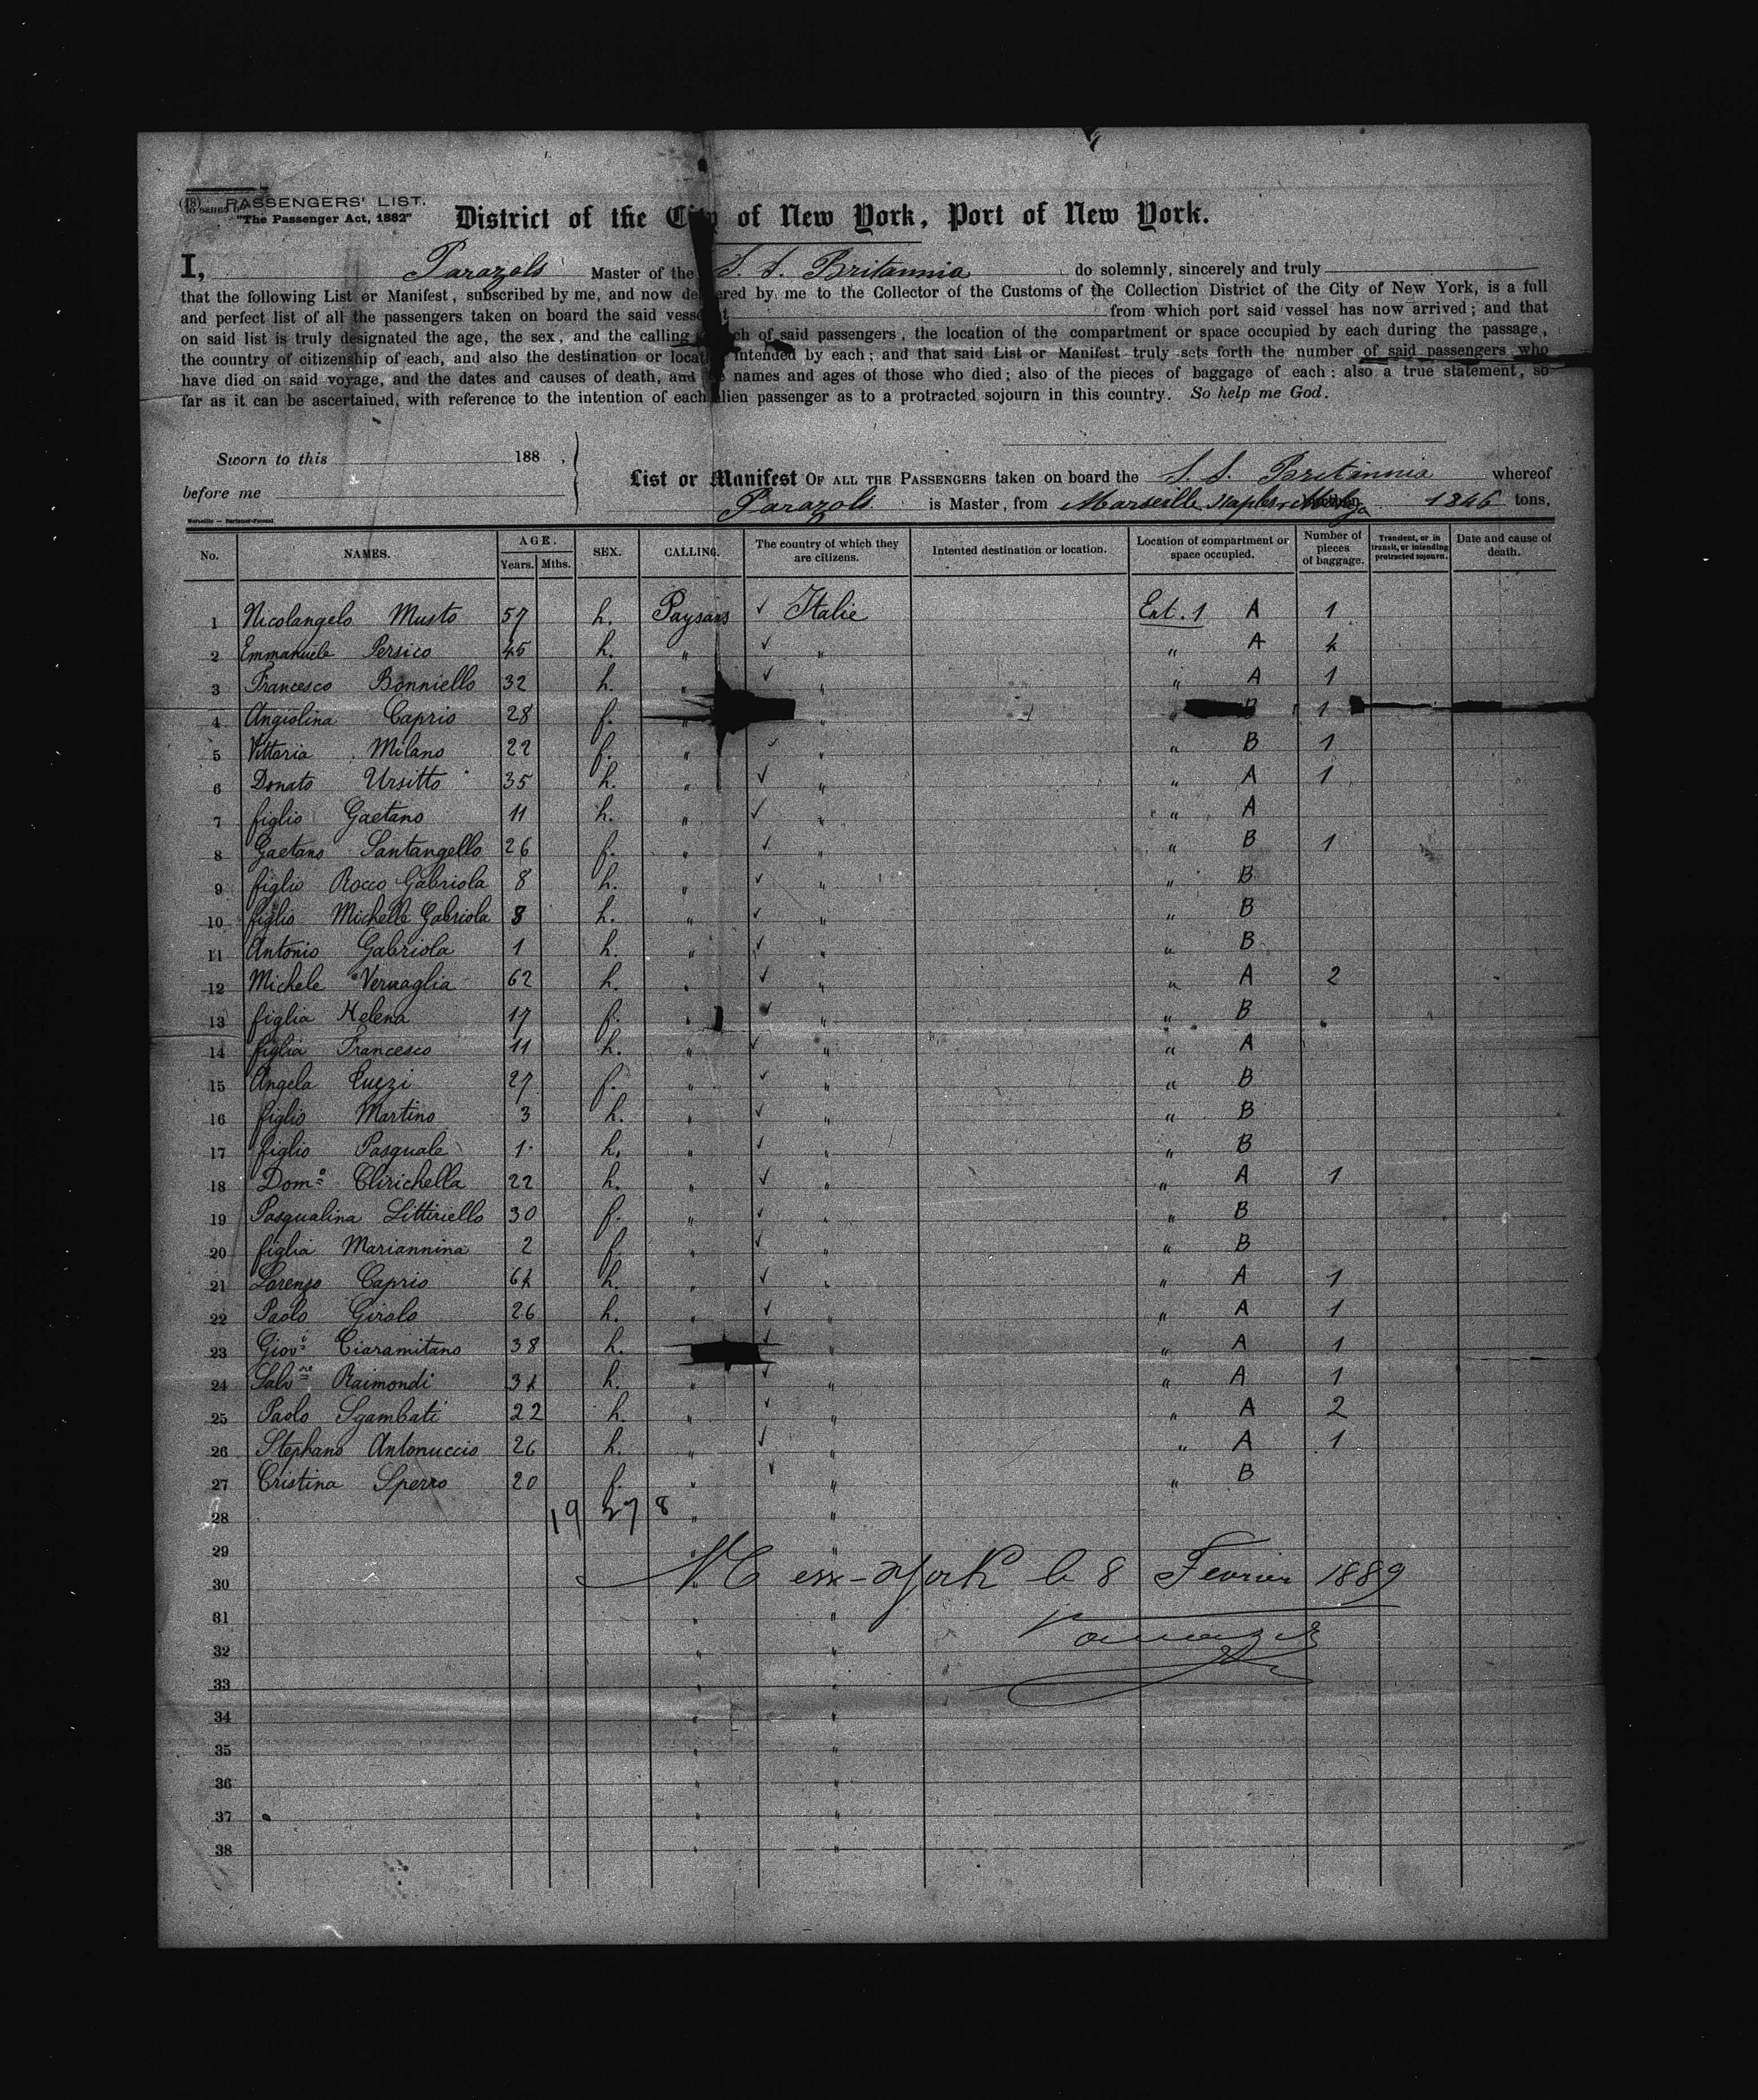 (18) PASSENGERS' LIST.
"The Passenger Act, 1882"
District of the City of New York, Port of New York.
I, Parazols Master of the S. S. Britannia do solemnly, sincerely and truly
that the following List or Manifest, subscribed by me, and now delivered by me to the Collector of the Customs of the Collection District of the City of New York, is a full
and perfect list of all the passengers taken on board the said vessel at from which port said vessel has now arrived; and that
on said list is truly designated the age, the sex, and the calling of each of said passengers, the location of the compartment or space occupied by each during the passage,
the country of citizenship of each, and also the destination or location intended by each; and that said List or Manifest truly sets forth the number of said passengers who
have died on said voyage, and the dates and causes of death, and the names and ages of those who died; also of the pieces of baggage of each: also a true statement, so
far as it can be ascertained, with reference to the intention of each alien passenger as to a protracted sojourn in this country. So help me God.
Sworn to this 188 ,
before me
List or Manifest OF ALL THE PASSENGERS taken on board the S. S. Britannia whereof
Parazols is Master, from Marseille Naples 1846 tons,
No. NAMES. AGE. Years. Mths. SEX. CALLING. The country of which they are citizens. Intented destination or location. Location of compartment or space occupied. Number of pieces of baggage. Transient, or in transit, or intending protracted sojourn. Date and cause of death.
1 Nicolangelo Musto 57 h. Paysans ✓ Italie Ent. 1 A 1
2 Emmanuele Persico 45 h. " ✓ " " A 4
3 Francesco Bonniello 32 h. " ✓ " " A 1
4 Angiolina Caprio 28 f. " " " B 1
5 Vittoria Milano 22 f. " ✓ " " B 1
6 Donato Ursitto 35 h. " ✓ " " A 1
7 figlio Gaetano 11 h. " ✓ " " A
8 Gaetano Santangello 26 f. " ✓ " " B 1
9 figlio Rocco Gabriola 8 h. " ✓ " " B
10 figlio Michelle Gabriola 8 h. " ✓ " " B
11 Antonio Gabriola 1 h. " ✓ " " B
12 Michele Vernaglia 62 h. " ✓ " " A 2
13 figlia Helena 17 f. " ✓ " " B
14 figlia Francesco 11 h. " ✓ " " A
15 Angela 27 f. " ✓ " " B
16 figlio Martino 3 h. " ✓ " " B
17 figlio Pasquale 1 h. " ✓ " " B
18 Dom.º Clirichella 22 h. " ✓ " " A 1
19 Pasqualina Littiriello 30 f. " ✓ " " B
20 figlia Mariannina 2 f. " ✓ " " B
21 Lorenzo Caprio 64 h. " ✓ " " A 1
22 Paolo Girolo 26 h. " ✓ " " A 1
23 Giov.i Ciaramitano 38 h. ✓ " " A 1
24 Salv.re Raimondi 34 h. " ✓ " " A 1
25 Paolo Sgambati 22 h. " ✓ " " A 2
26 Stephano Antonuccio 26 h. " ✓ " " A 1
27 Cristina Sperro 20 f. " ✓ " " B
28 19 27 8 " "
29 " "
30 New-York le 8 Fevrier 1889
31 " "
32 " "
33 " "
34 " "
35 " "
36 " "
37 " "
38 " "